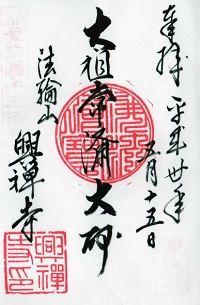 奉拝
平成卅年
五月十五日
大祖常済大師
法輪山
興禅寺